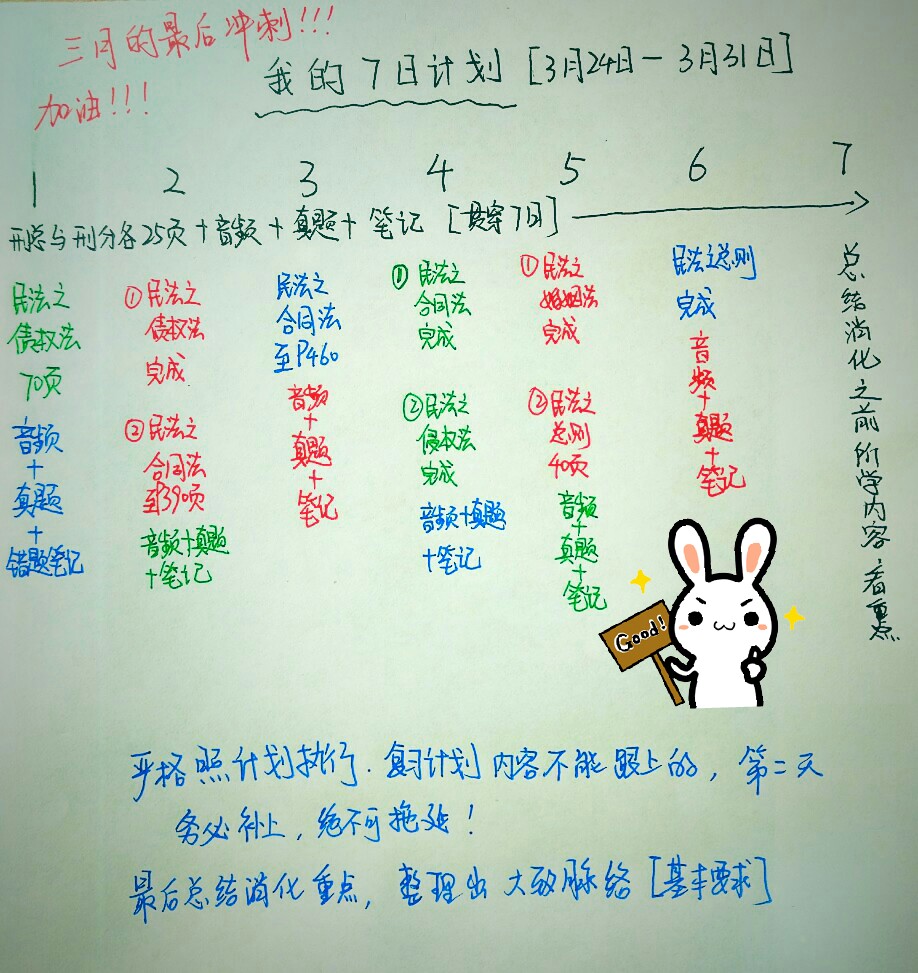 三月的最后冲刺!!!
加油!!!
我的7日计划 [3月24日－3月31日]
1 2 3 4 5 6 7
刑总与刑分各25页+音频+真题+笔记 [贯穿7日]
民法之
债权法
70页
音频
+
真题
+
错题笔记
①民法之
债权法
完成
②民法之
合同法
至P390项
音频+真题
+笔记
民法之
合同法
至P460
音频
+
真题
+
笔记
①民法之
合同法
完成
②民法之
侵权法
完成
音频+真题
+笔记
①民法之
婚姻法
完成
②民法之
总则
40页
音频
+
真题
+
笔记
民法之总则
完成
音
频
+
真题
+
笔记
总结消化之前所学内容,看重点
Good!
严格照计划执行.复习计划内容不能跟上的，第二天
务必补上，绝不可拖延！
最后总结消化重点，整理出大致脉络[基本要求]